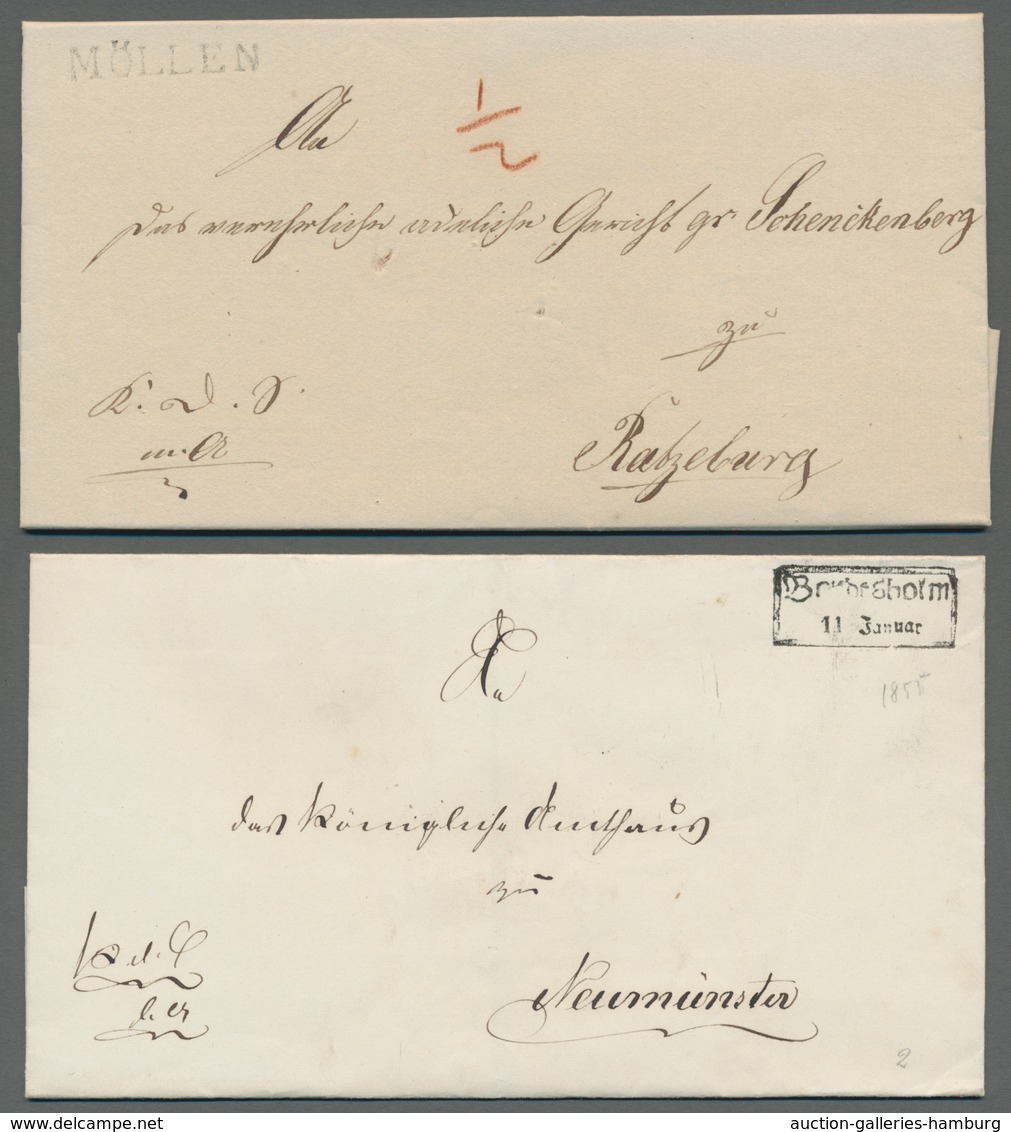 MÖLLEN
An
1/2
das verehrliche adeliche Gericht gr. Schenckenberg
zu
Ratzeburg
K. d. S.
m. A
Bordesholm
11 Januar
1855
An
das Königliche Amthaus
zu
Neumünster
K. d. S
d. A
2
www.delcampe.net
auction-galleries-hamburg